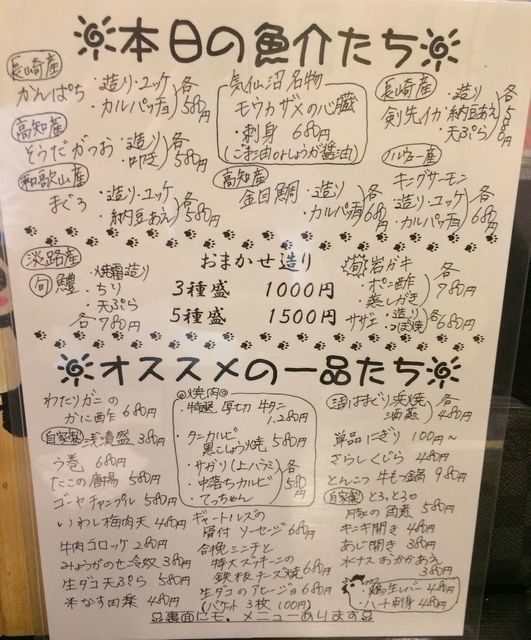 本日の魚介たち
長崎産
かんぱち
・造り・ユッケ
・カルパッチョ
各580円
高知産
そうだがつお
・造り
・叩き
各580円
和歌山産
まぐろ
・造り・ユッケ
・納豆あえ
各580円
気仙沼名物
モウカザメの心臓
・刺身 680円
(ごま油orしょうが醤油)
高知産
金目鯛
・造り
・カルパッチョ
各680円
長崎産
剣先イカ
・造り
・納豆あえ
・天ぷら
各580円
ノルウェー産
キングサーモン
・造り・ユッケ
・カルパッチョ
各680円
淡路産
旬 鱧
・焼霜造り
・ちり
・天ぷら
各780円
おまかせ造り
3種盛 1000円
5種盛 1500円
旬 岩ガキ
・ポン酢
・蒸しがき
各780円
サザエ
・造り
・つぼ焼
各680円
オススメの一品たち
わたりガニの
かに酢 680円
自家製 浅漬盛 380円
う巻 680円
たこの唐揚 580円
ゴーヤチャンプル 580円
いわし梅肉天 480円
牛肉コロッケ 280円
みょうがのせ冷奴 380円
生ダコ天ぷら 580円
米なす田楽 480円
◎焼肉◎
・特選 厚切 牛タン
1,280円
・タンカルビ
黒こしょう焼 580円
・サガリ(上ハラミ)
・中落ちカルビ
・てっちゃん
各580円
ギャートルズの
骨付ソーセージ 680円
合挽ミンチと
特大ズッキーニの
鉄板チーズ焼 680円
生ダコのアヒージョ 680円
(バケット3枚 100円)
活はまぐり
浜焼
酒蒸
各480円
単品にぎり 100円~
さらしくじら 480円
とんこつ 牛もつ鍋 980円
自家製 とろとろの
豚の角煮 580円
キンキ開き 480円
あじ開き 380円
水ナス おかかあえ
380円
・鶏生レバー 480円
・ハート刺身 480円
裏面にも、メニューあります